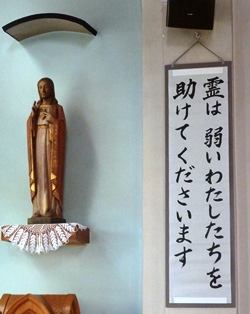 霊は 弱いわたしたちを
助けてくださいます